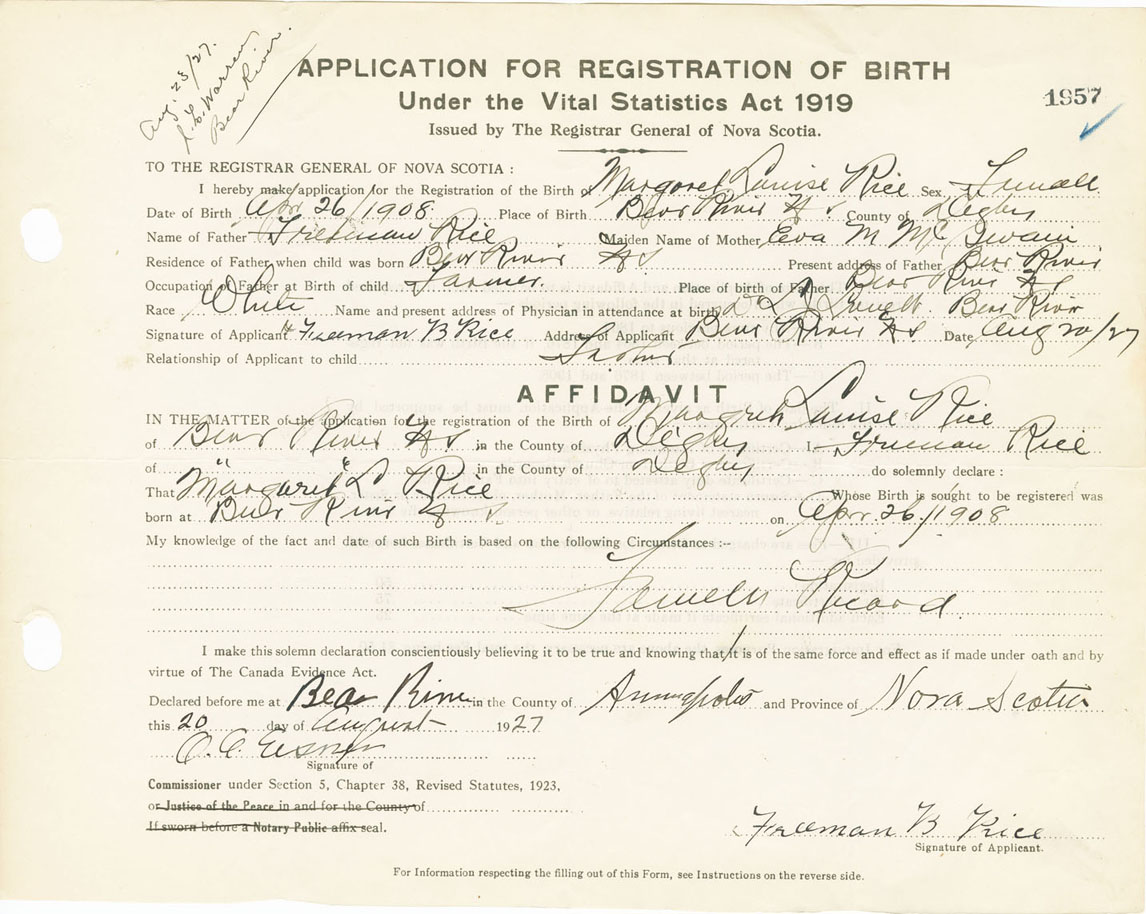 Aug. 25/27.
L. L. Warren
Bear River.
APPLICATION FOR REGISTRATION OF BIRTH
Under the Vital Statistics Act 1919
1957
Issued by The Registrar General of Nova Scotia.
TO THE REGISTRAR GENERAL OF NOVA SCOTIA :
I hereby make application for the Registration of the Birth of Margaret Louise Rice Sex Female
Date of Birth Apr 26/1908 Place of Birth Bear River N S County of Digby
Name of Father Freeman Rice Maiden Name of Mother Eva M Mc Swain
Residence of Father when child was born Bear River NS Present address of Father Bear River
Occupation of Father at Birth of child Farmer. Place of birth of Father Bear River NS
Race White Name and present address of Physician in attendance at birth L J Lovett. Bear River
Signature of Applicant Freeman B Rice Address of Applicant Bear River NS Date Aug 20/27
Relationship of Applicant to child Father
AFFIDAVIT
IN THE MATTER of the application for the registration of the Birth of Margret Louise Rice
of Bear River N S in the County of Digby I Freeman Rice
of " " in the County of Digby do solemnly declare :
That Margaret L Rice Whose Birth is sought to be registered was
born at Bear River N S on Apr. 26./1908
My knowledge of the fact and date of such Birth is based on the following Circumstances :--
Family Record
I make this solemn declaration conscientiously believing it to be true and knowing that it is of the same force and effect as if made under oath and by
virtue of The Canada Evidence Act.
Declared before me at Bear River in the County of Annapolis and Province of Nova Scotia
this 20 day of August 1927
Signature of
Commissioner under Section 5, Chapter 38, Revised Statutes, 1923,
or Justice of the Peace in and for the County of
If sworn before a Notary Public affix seal.
Freeman B Rice
Signature of Applicant.
For Information respecting the filling out of this Form, see Instructions on the reverse side.